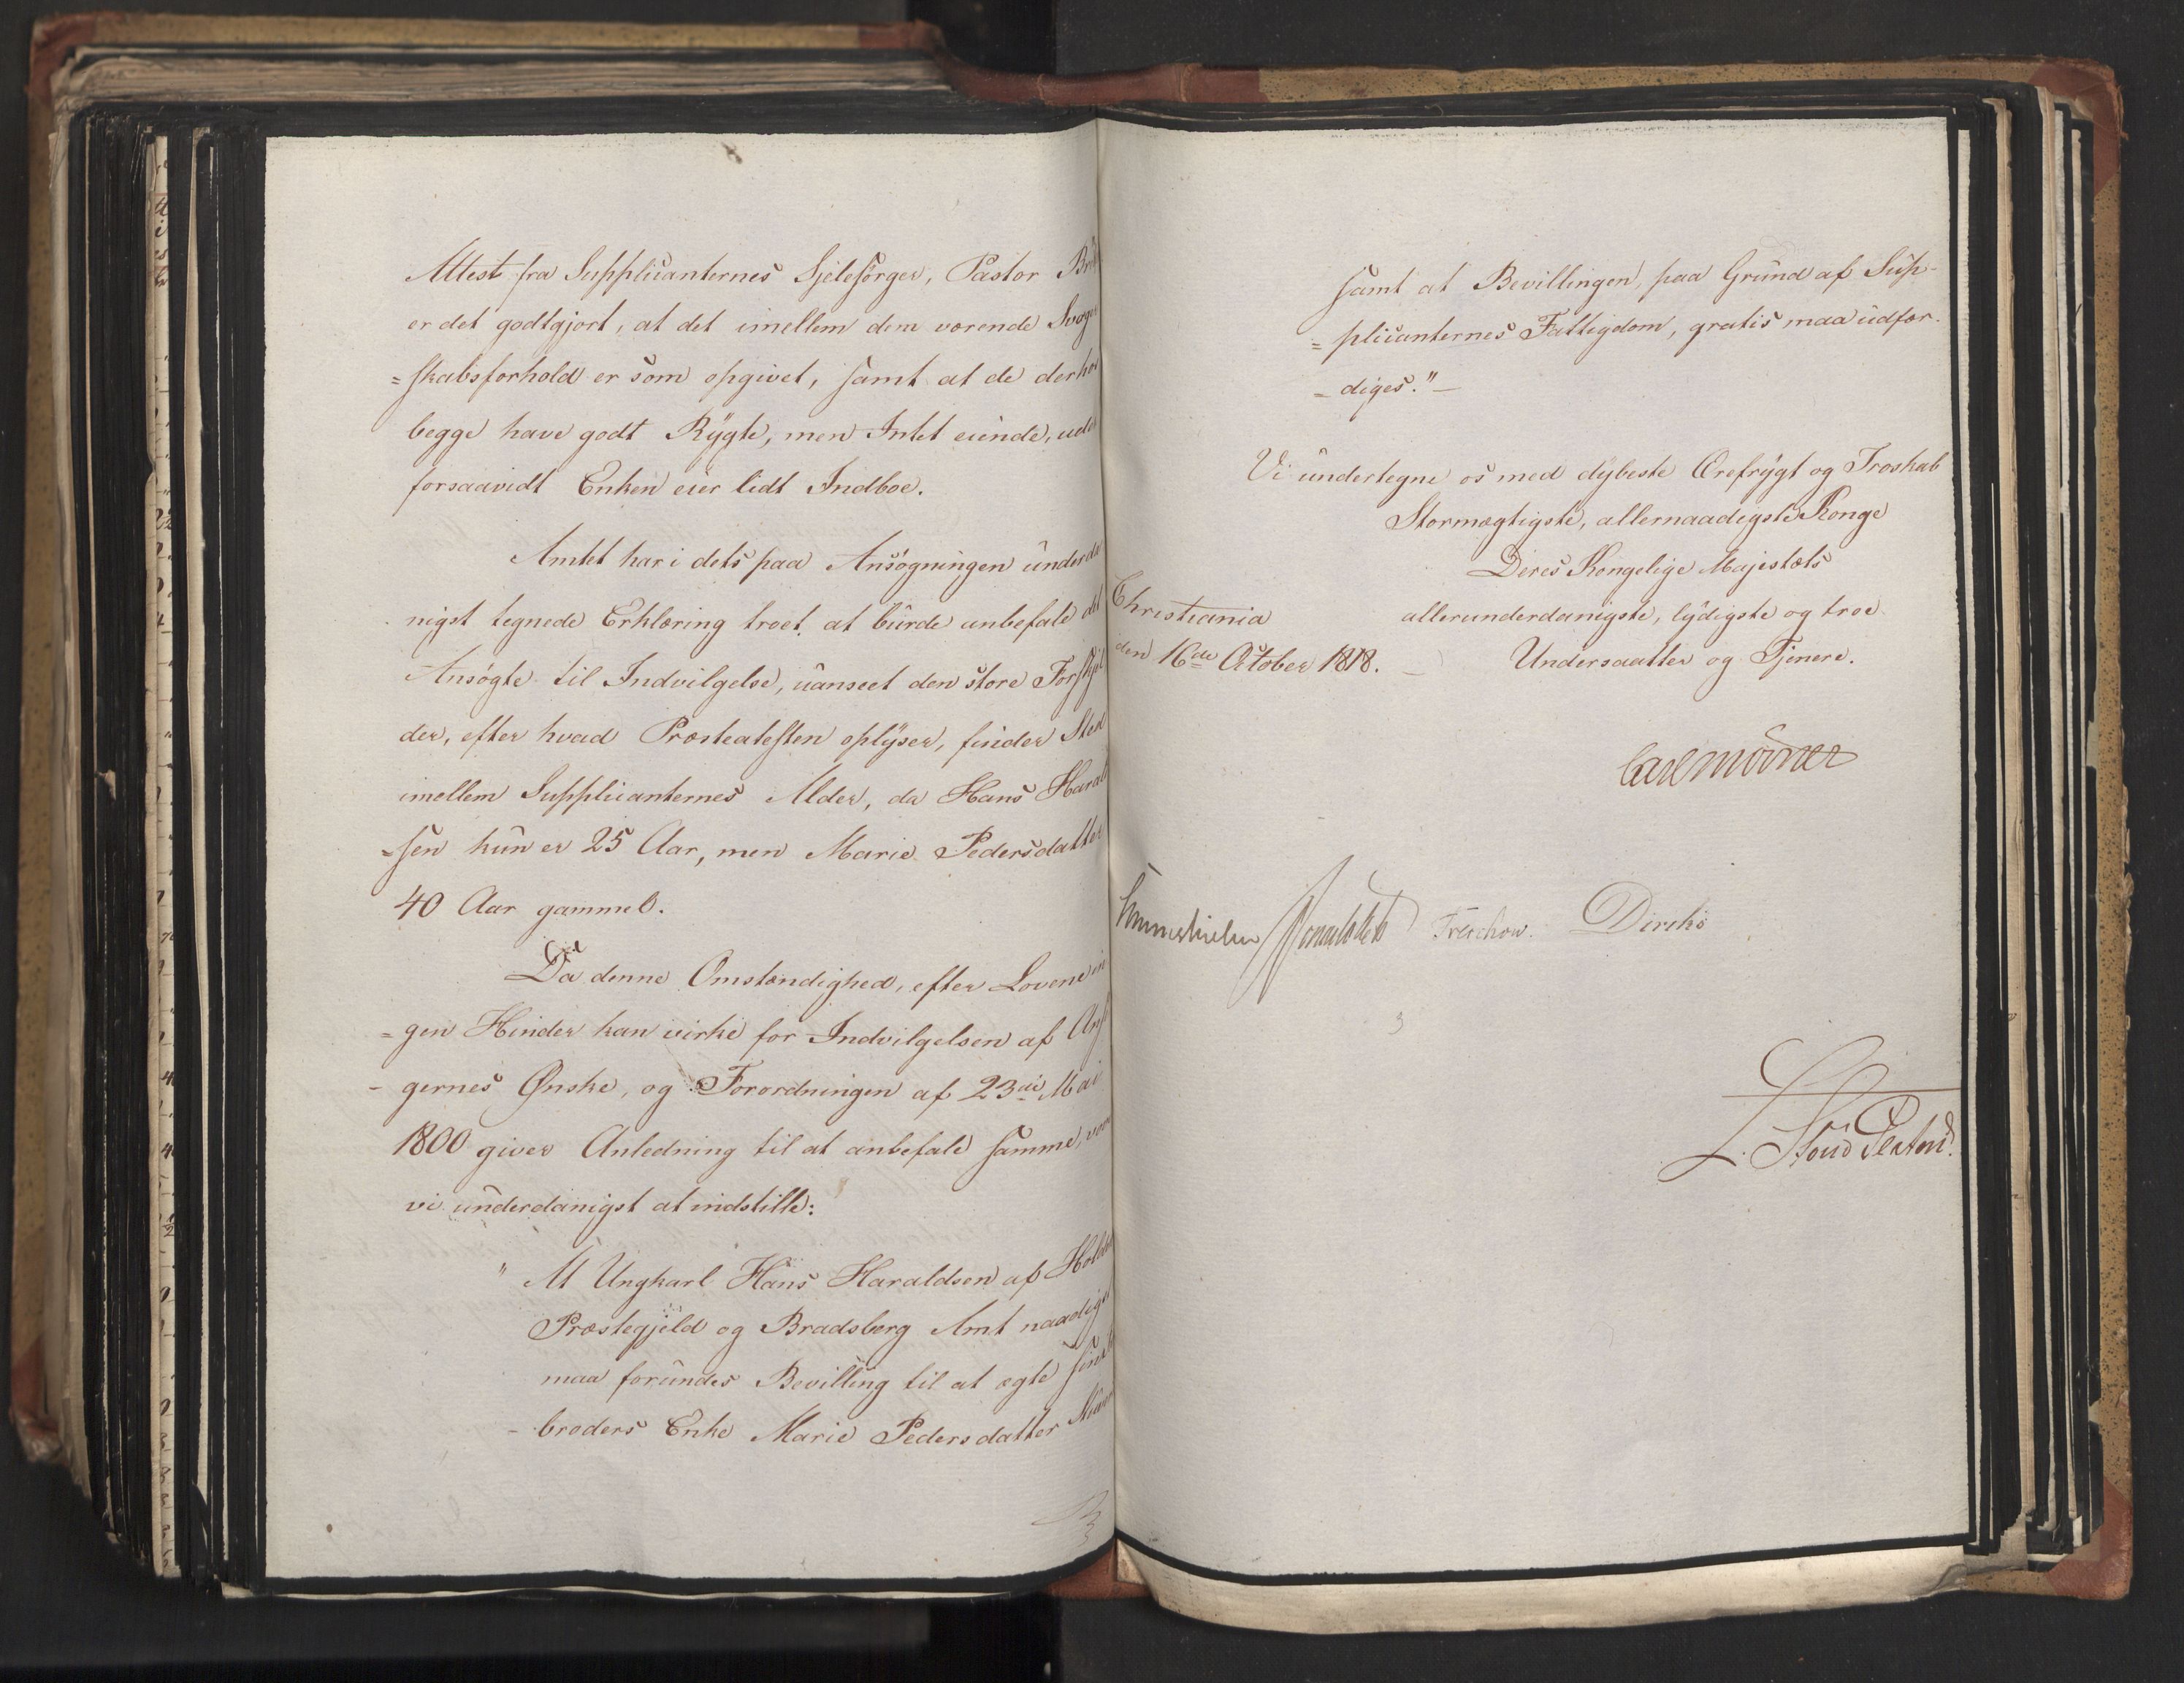 Attest fra Supplicanternes Sjelesørger, Pastor
er det godtgjort, at det imellem dem værende Svoger
=skabsforhold er som opgivet, samt at de derhos
begge have godt Rygte, men Intet eiende, uden
forsaavidt Enken eier lidt Indboe.
Amtet har i dets paa Ansøgningen underda
nigst tegnede Erklæring troet at burde anbefale det
Ansøgte til Indvilgelse, uanseet den store Forskjel
der, efter hvad Præsteattesten oplyser, finder Sted
imellem Supplicanternes Alder, da Hans Harald
=sen kun er 25 Aar, men Marie Pedersdatter
40 Aar gammel.
Da denne Omstændighed, efter Lovene in
=gen Hinder kan virke for Indvilgelsen af Ansø
-gernes Ønske, og Forordningen af 23de Mai
1800 giver Anledning til at anbefale samme, vove
vi underdanigst at indstille:
" At Ungkarl Hans Haraldsen af Holden
Præstegjeld og Bradsberg Amt naadigst
maa forundes Bevilling til at ægte sin
-broders Enke Marie Pedersdatter
samt at Bevillingen, paa Grund af Sup-
=plicanternes Fattigdom, gratis maa udfær-
-diges."
Vi undertegne os med dybeste Ærefrygt og Troskab
Stormægtigste, allernaadigste Konge
Deres Kongelige Majestæts
Christiania
allerunderdanigste, lydigste og troe
den 16de October 1818.
Undersaatter og Tjenere.
Carl Mörner
Sommerhielm
Treschow.
Diriks
L. Stoud Platou